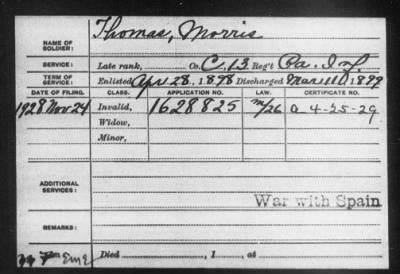 Thomas, Morris
NAME OF SOLDIER:
SERVICE: Late rank, Co. C, 13 Reg't Pa. Inf.
TERM OF SERVICE: Enlisted Apr 28, 1898 Discharged Mar 11, 1899
DATE OF FILING. CLASS. APPLICATION NO. LAW. CERTIFICATE NO.
1928 Nov 24 Invalid, 1628825 m/26 a 4-25-29
Widow,
Minor,
ADDITIONAL SERVICES:
War with Spain
REMARKS:
Died , 1 , at